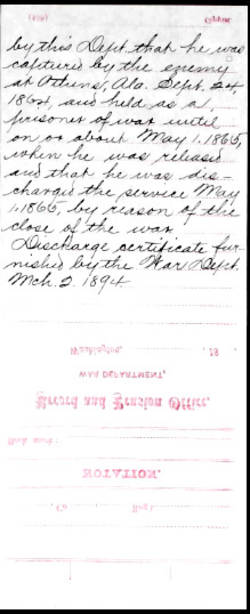 (449) Copper
by this Dept. that he was
captured by the enemy
at Athens, Ala. Sept. 24
1864, and held as a
prisoner of war until
on or about May 1, 1865,
when he was released
and that he was dis-
charged the service May
1, 1865, by reason of the
close of the war.
Discharge certificate fur-
nished by the War Dept.
Mch. 2. 1894
Washington, , 18
WAR DEPARTMENT,
Record and Pension Office.
Book mark:
NOTATION.
Co. Reg't